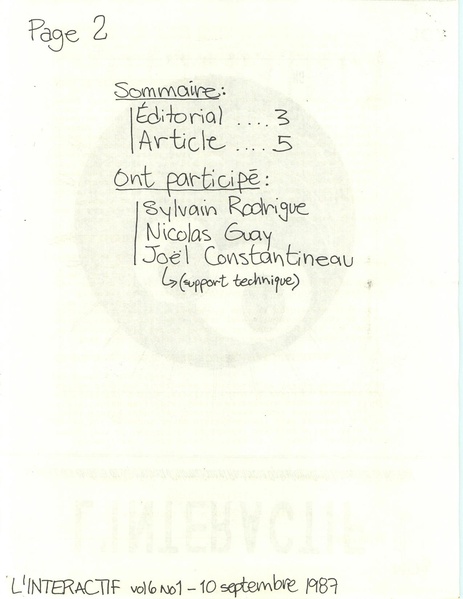 Page 2
Sommaire:
Éditorial .... 3
Article .... 5
Ont participé:
Sylvain Rodrigue
Nicolas Guay
Joël Constantineau
↳(support technique)
L'INTERACTIF
L'INTERACTIF vol6 No1 - 10 septembre 1987